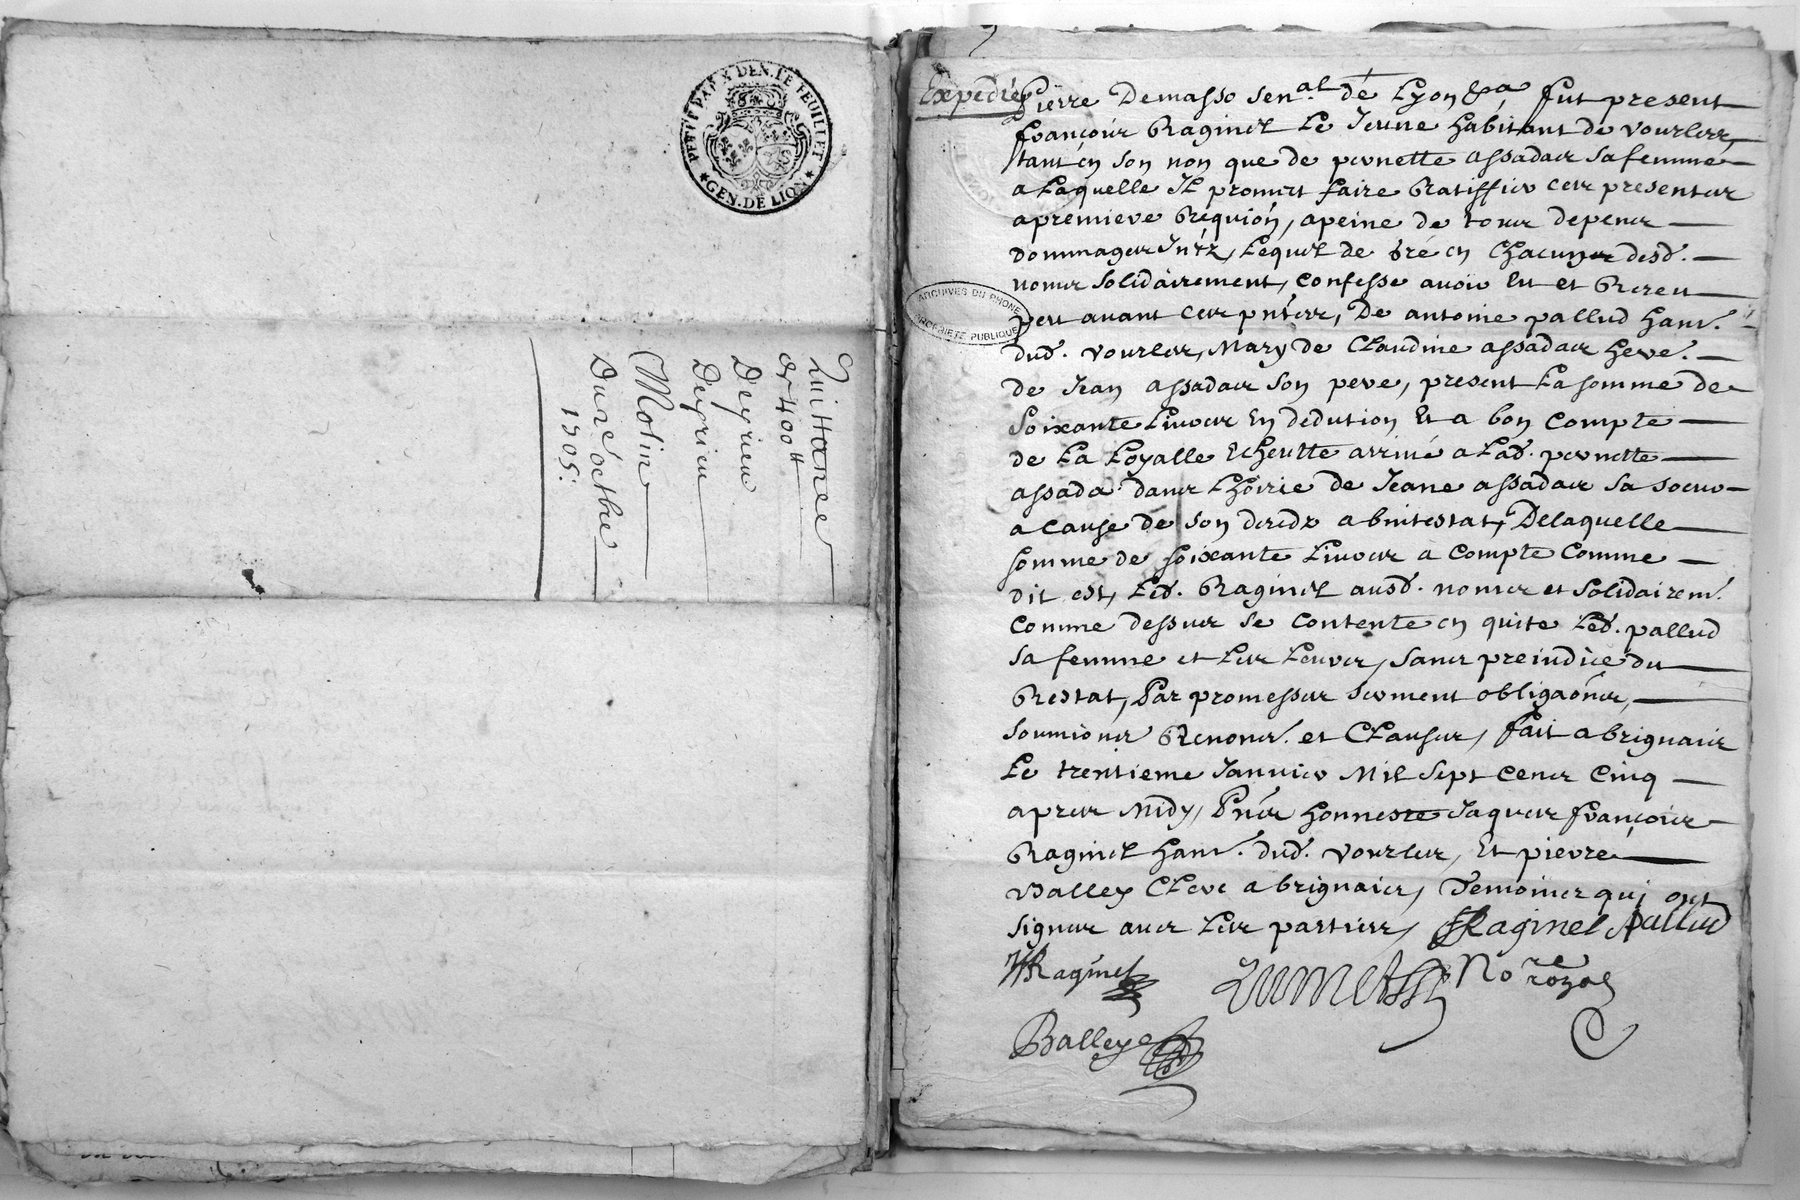 PETIT PAP. X DEN. LE FEUILLET
GEN. DE LION
Quittance
de 400 ₶
Deyrieu
Deyrieu
Molin
Du 12e octbre
1705.
Expédiée
Pierre Demasso Senal. de Lyon &a fut present
françois Raginel Le Jeune habitant de vourles,
tant en son non que de pernette assadas sa femme
a Laquelle Il promet faire Ratiffier ces presentes
a premiere Requion, a peine de tous depens
dommages Intz, Lequel de gré en Chacuns desd.
noms solidairement, confesse avoir Eu et Receu
peu avant ces pntes, De antoine pallud hant.
dud. vourles, Mary de Claudine assadas here.
de Jean assadas son pere, present La somme de
Soixante Livres En dedution Et a bon compte
de La Loyalle Echeutte arrivé a Lad. pernette
assada dans Lhoirie de Jeane assadas sa soeur
a cause de son decedz abintestat, De laquelle
somme de soixante Livres a compte Comme
dit est, Led. Raginel ausd. noms et solidairemt.
comme dessus se contente en quite Led. pallud
sa femme et Les Leurs, sans preiudice du
Restat, Par promesses serment obligaõns,
soumions Renons. et Clauses, fait a brignais
Le trentieme Janvier Mil sept cens cinq
apres Midy, Pñs honneste Jaques françois
Raginel hant. dud. vourles, Et pierre
Balley Clerc a brignais, Temoins qui ont
signes avec Les parties, FRaginel APallud
JfRaginel
No re royal
Balleye
ARCHIVES DU RHONE
PROPRIETE PUBLIQUE